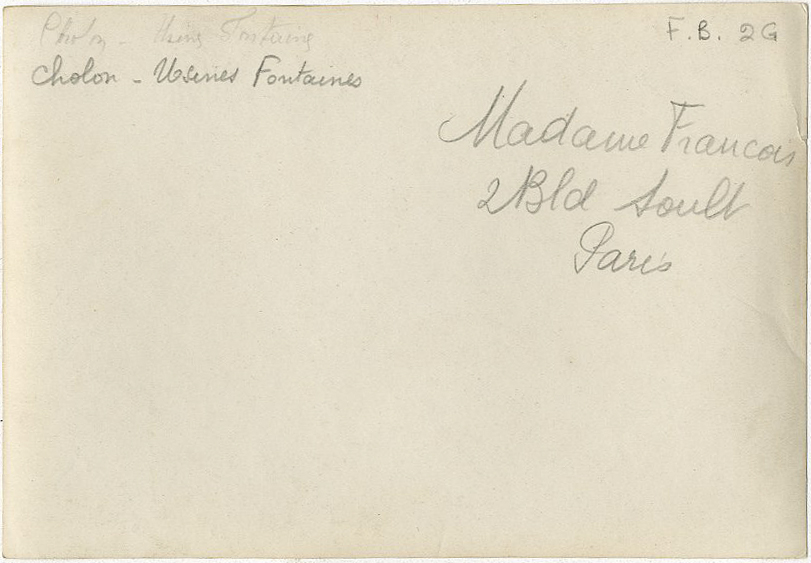 Cholon - Usine Fontaine
F.B. 2G
Cholon - Usines Fontaines
Madame Francois
2 Bld Soult
Paris